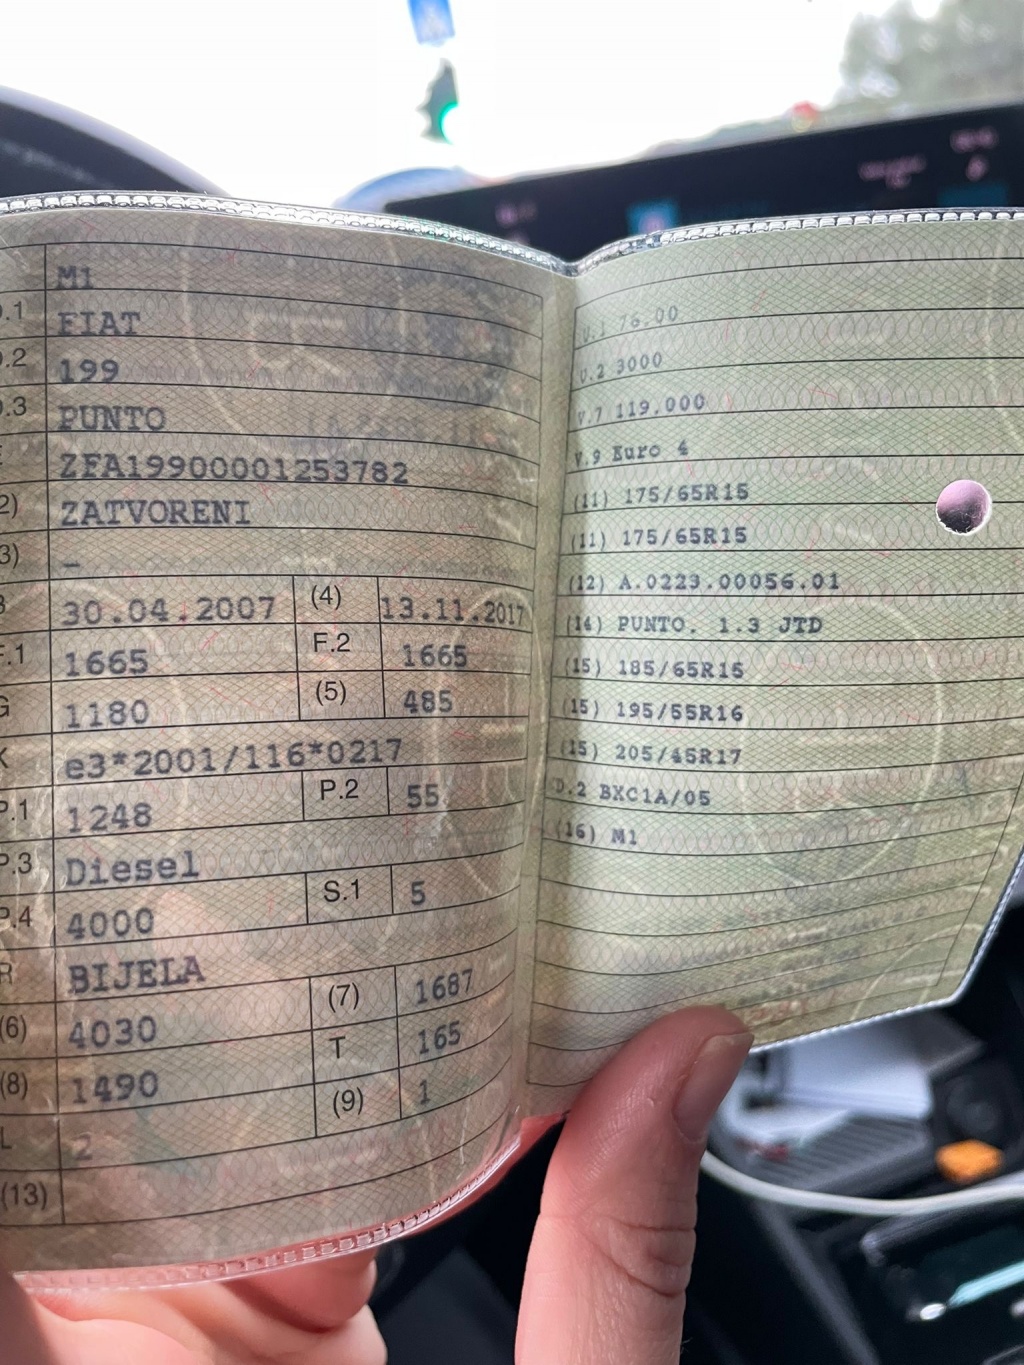 M1
.1 FIAT
.2 199
.3 PUNTO
ZFA19900001253782
2) ZATVORENI
3) –
30.04.2007 (4) 13.11.2017
F.1 1665 F.2 1665
G 1180 (5) 485
K e3*2001/116*0217
P.1 1248 P.2 55
P.3 Diesel
P.4 4000 S.1 5
R BIJELA
(6) 4030 (7) 1687
(8) 1490 T 165
L 2 (9) 1
(13)
U.1 76.00
U.2 3000
V.7 119.000
V.9 Euro 4
(11) 175/65R15
(11) 175/65R15
(12) A.0223.00056.01
(14) PUNTO. 1.3 JTD
(15) 185/65R15
(15) 195/55R16
(15) 205/45R17
D.2 BXC1A/05
(16) M1